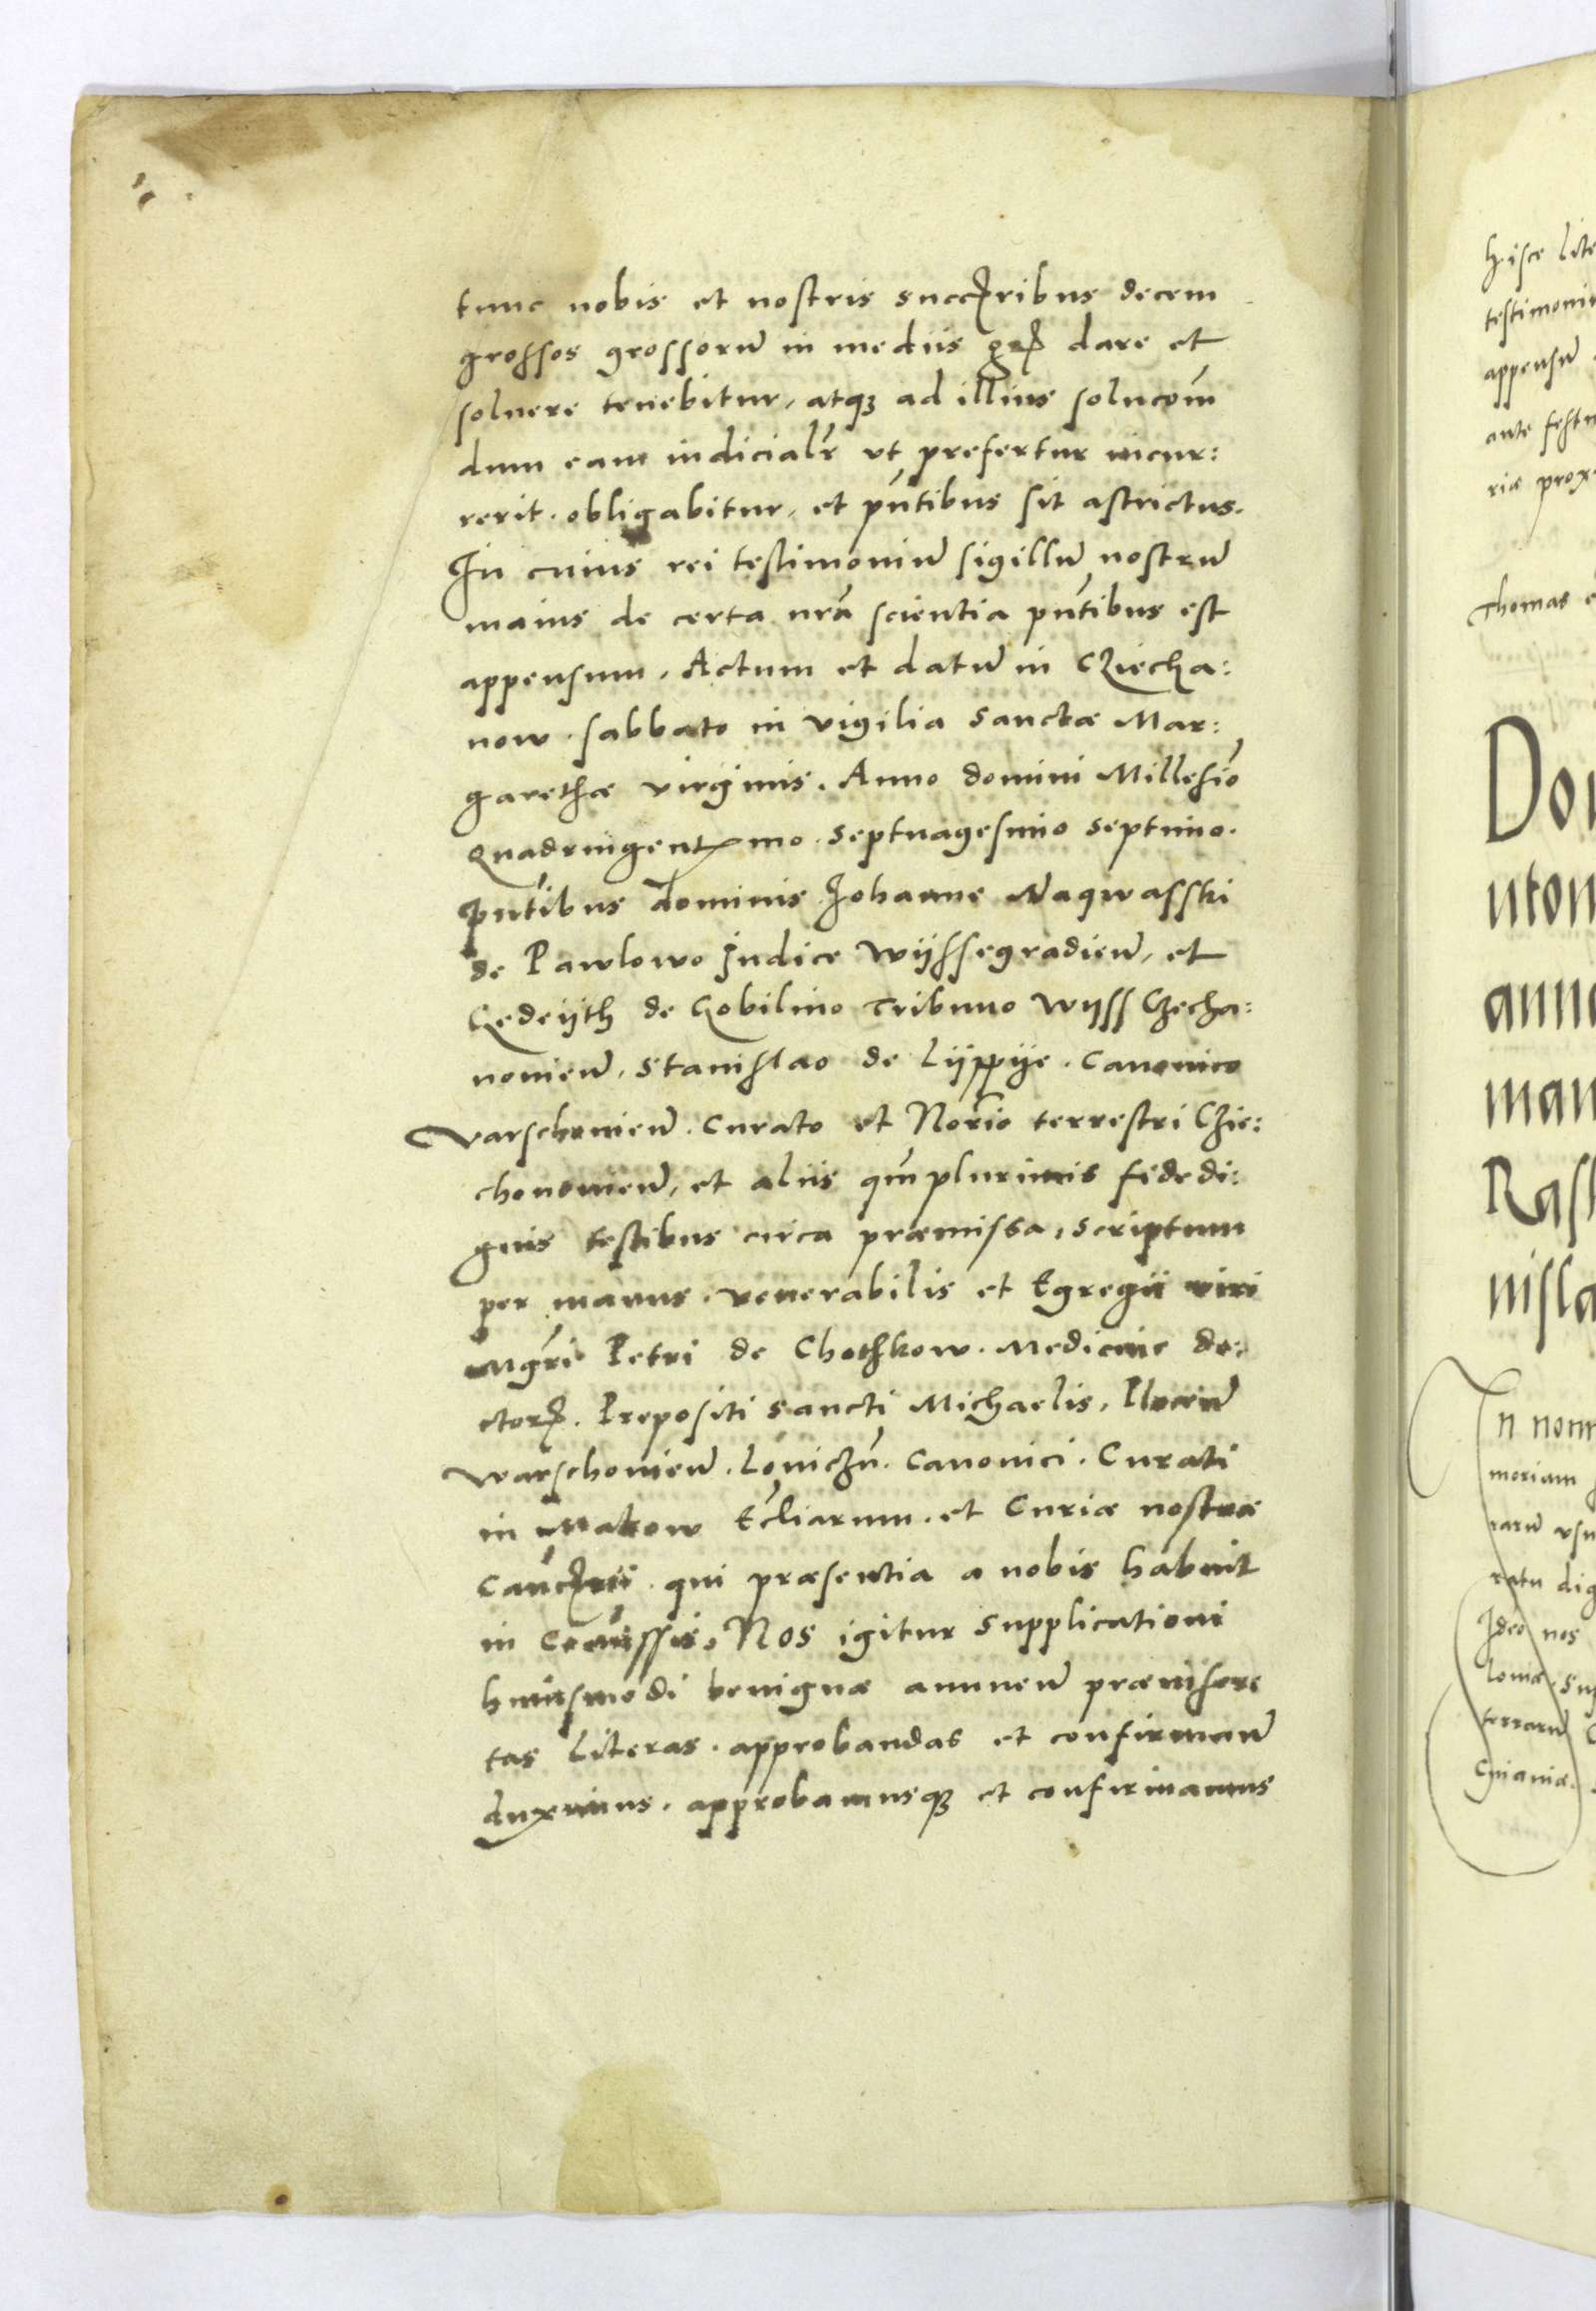 tunc nobis et nostris succ̃ribus decem
grossos grossorũ in mediis gr̃ dare et
soluere tenebitur, atqꝫ ad illius solucõm
dum eam iudicialr̃ vt prefertur incur:
rerit. obligabitur, et pñtibus sit astrictus.
In cuius rei testimoniũ sigillũ nostrũ
maius de certa nr̃a scientia pñtibus est
appensum. Actum et datũ in Cziecha:
now. sabbato in vigilia sanctæ Mar:
garethæ virginis. Anno domini Millesiõ
Quadringentmo. septuagesimo septimo.
pñtibus dominis Johanne Naqwasski
de Pawlowo Judice Wÿssegradien̄, et
de Kobilino Tribuno Wÿss Czecha:
nonien̄, Stanislao de Lÿppÿe. Canonico
Varschouien̄. Curato et Norĩo terrestri Czie:
chonouien̄, et aliis qm̃plurimis fidedi:
gnis testibus circa præmissa, scriptum
per manus. venerabilis et Egregii viri
Mgr̃i Petri de Chothkow. Medicine do:
ctor̃. Prepositi sancti Michaelis, Plocen̄
Warschouien̄. Louiczñ. Canonici. Curati
in Makow Ec̃liarum. et Curiæ nostræ
Canc̃rii. qui præsentia a nobis habuit
in Com̃issis. Nos igitur supplicationi
huiusmodi benignæ annuen̄ præinser
tas literas. approbandas et confirman̄
duximus. approbamusqꝫ et confirmamus
hisce lite
testimoniũ
appensũ
ante festu
riæ prox
Thomas
Do
uton
anno
man
Rast
nisla
In nom
moriam
rarũ usu
ratu dig
Ideo nos
loniæ, Su
terrarũ C
Cuiauiæ.